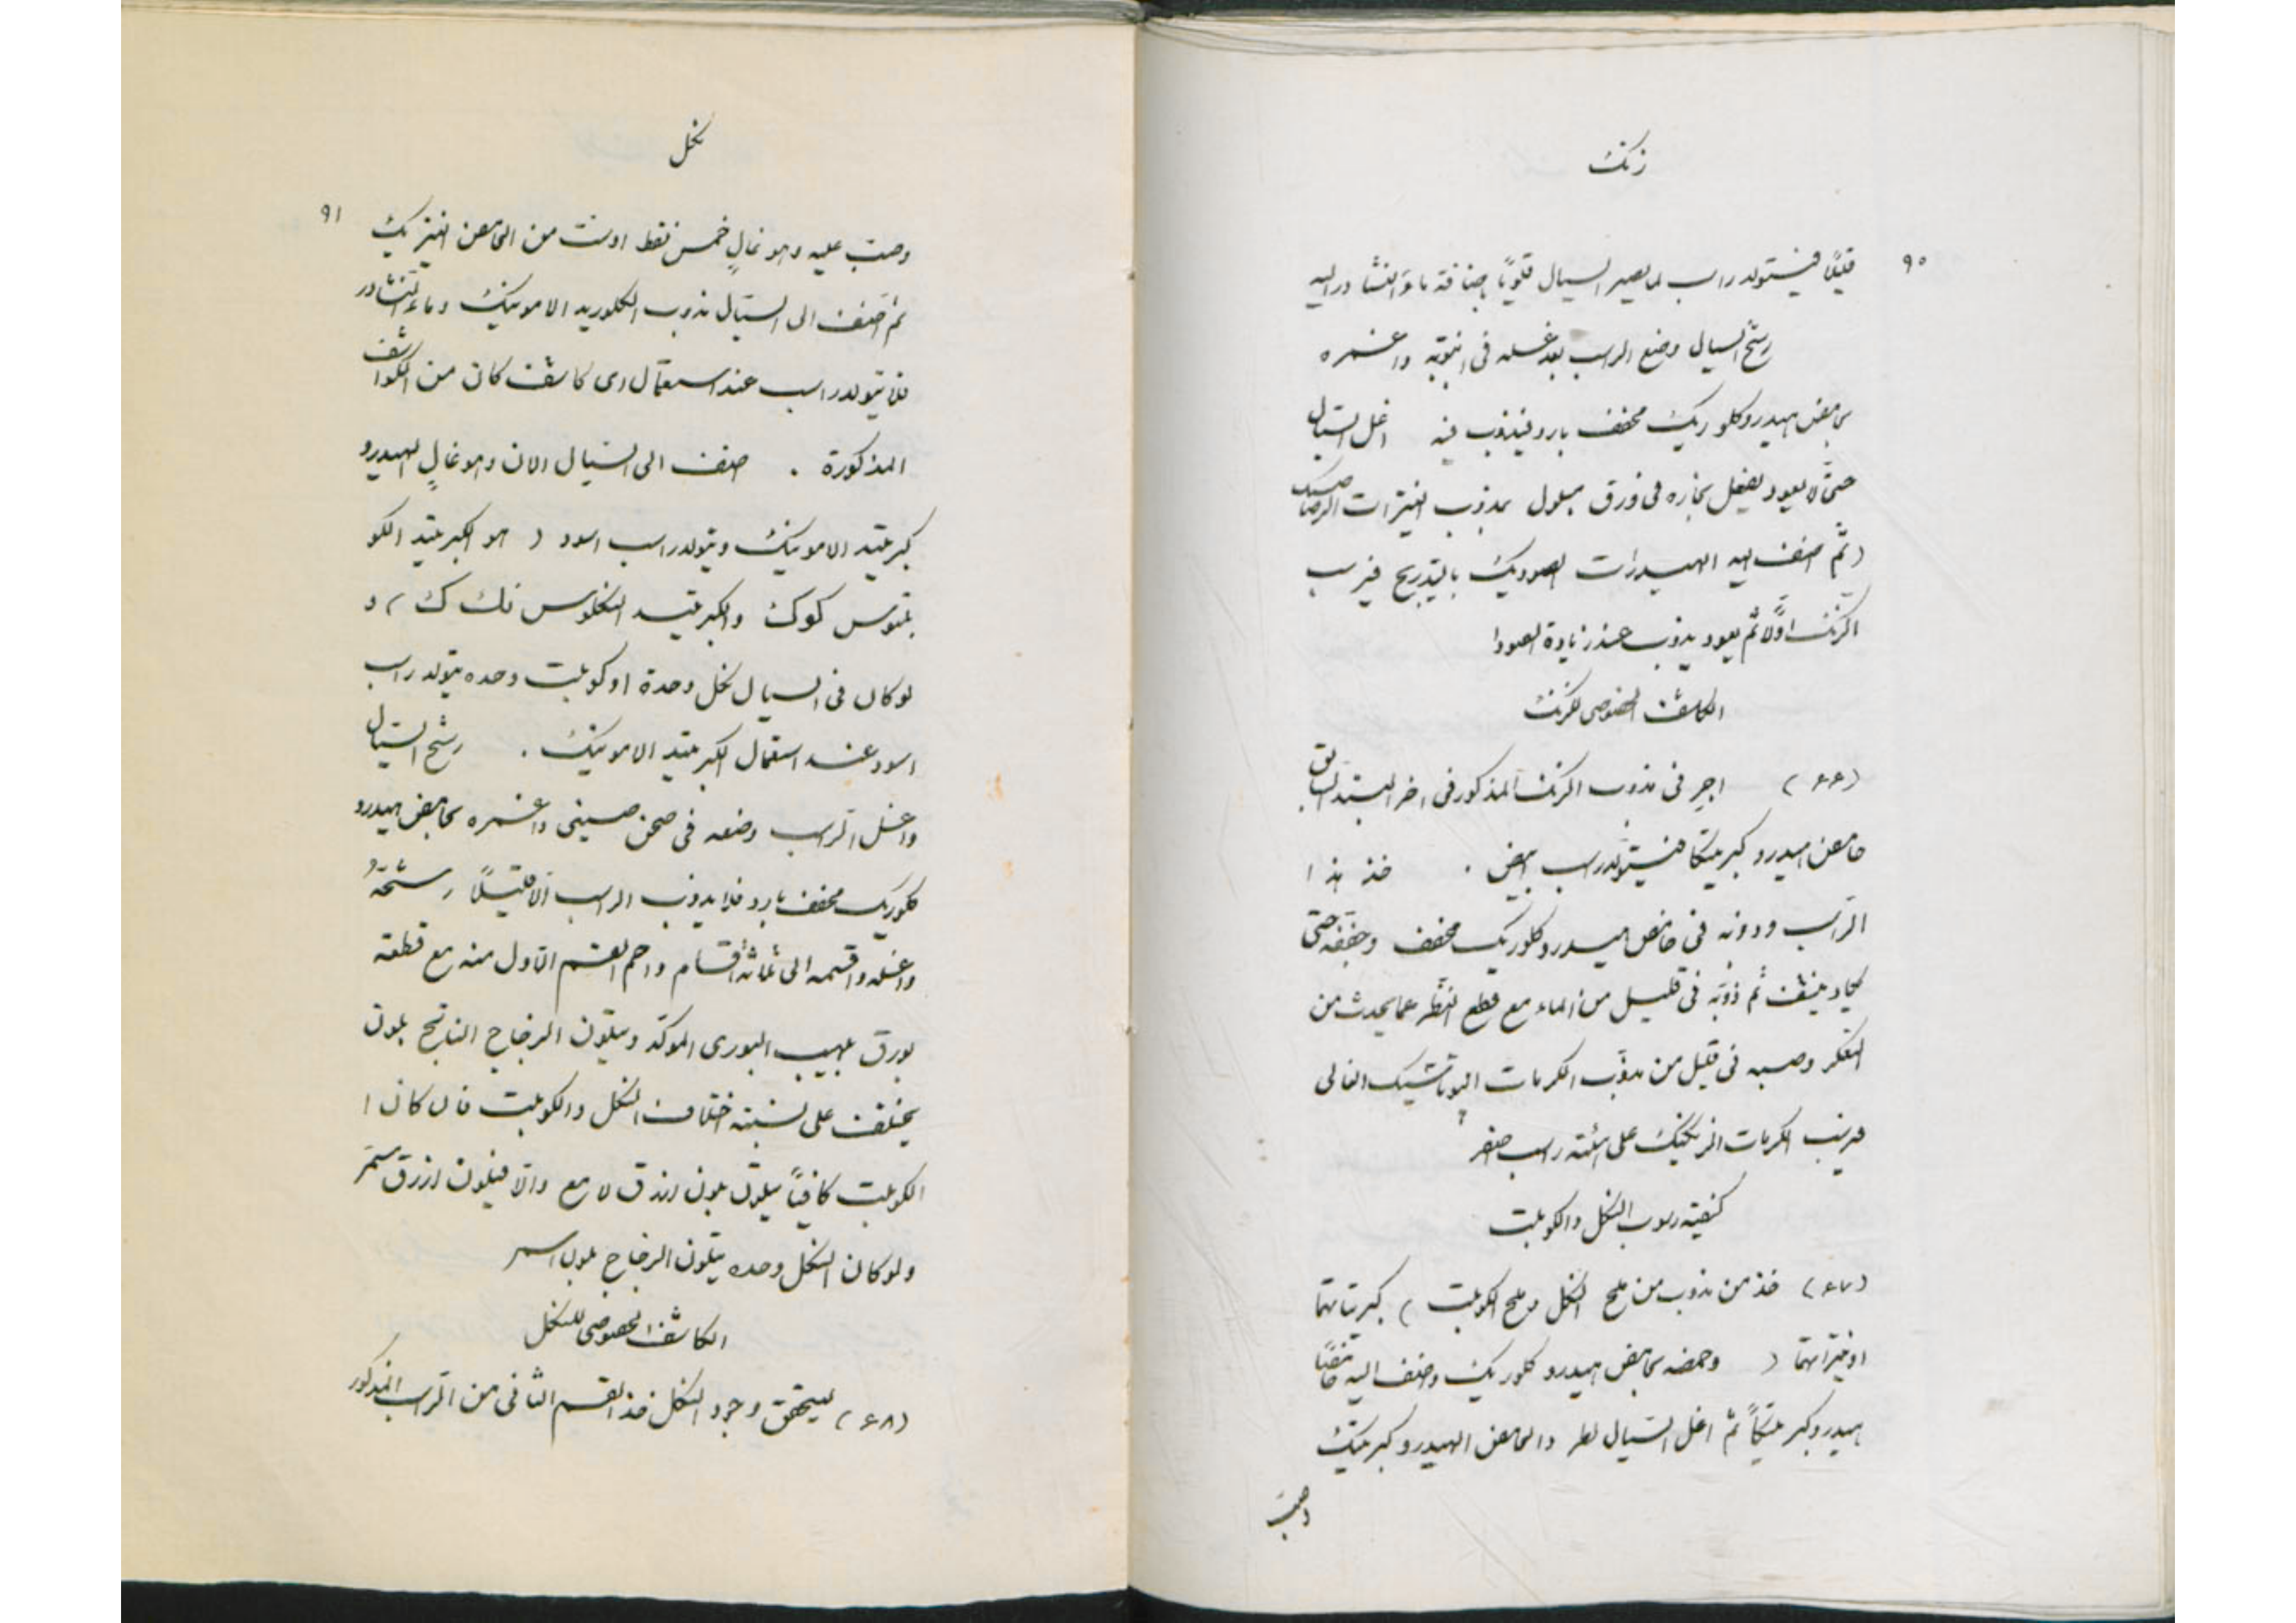 زنك
٩٠
قليلًا فيتولد راسب لما يصير السيال قلويًا باضافة ماء النشادر اليه
رشح السيال وضع الراسب بعد غسله في انبوبة واغمره
بحامض هيدروكلوريك مخفف بارد فيذوب فيه اغل السيال
حتى لا يعود يفعل بخاره في ورق مبلول بمذوب النيترات الرصاصيك
(ثم اضف اليه الهيدرات الصوديك بالتدريج فيرسب
الزنك اولًا ثم يعود يذوب عند زيادة الصودا
الكاشف الخصوصي للزنك
(٦٦) اجرِ في مذوب الزنك المذكور في اخر البند السابق
حامض هيدروكبريتيكا فيتولد راسب ابيض . خذ هذا
الراسب وذوبه في حامض هيدروكلوريك مخفف وجففه حتى
يكاد ينشف ثم ذوّبه في قليل من الماء مع قطع النظر عما يحدث من
التعكر وصبه في قليل من مذوّب الكرمات البوتاشيك الغالي
فيرسب الكرمات الزنكيك على هيئة راسب اصفر
كيفية رسوب النكل والكوبلت
(٦٧) خذ من مذوب من ملح النكل وملح الكوبلت ) كبريتاتهما
او نيتراتهما ( وحمضه بحامض هيدروكلوريك واضف اليه حامضًا
هيدروكبريتيكًا ثم اغل السيال لطرد الحامض الهيدروكبريتيك
وصبّ
نكل
٩١
وصبّ عليه وهو غالٍ خمس نقط او ست من الحامض النيتريك
ثم اضف الى السيّال مذوب الكلوريد الامونيك وماء النشادر
فلا يتولد راسب عند استعمال اي كاشف كان من الكواشف
المذكورة . اضف الى السيال الان وهو غالٍ الهيدرو
كبريتيد الامونيك ويتولد راسب اسود ( هو الكبريتيد الكو
بلتوس كوك والكبريتيد النكلوس نك ك ) و
لو كان في السيال نكل وحدة او كوبلت وحده يتولد راسب
اسود عند استعمال الكبريتيد الامونيك . رشح السيال
واغسل الراسب وضعه في صحن صيني واغمره بحامض هيدرو
كلوريك مخفف بارد فلا يذوب الراسب الّا قليلًا رشحهُ
واغسله واقسمه الى ثلاثة اقسام واحم القسم الاول منه مع قطعة
بورق بلهيب البوري الموكد ويتلون الزجاج الناتج بلون
يختلف على نسبة اختلاف النكل والكوبلت فان كان ا
الكوبلت كافيًا يتلون بلون ازرق لامع والا فيلون ازرق اسمر
ولو كان النكل وحده يتلون الزجاج بلون اسمر
الكاشف الخصوصي للنكل
(٦٨) ليتحقق وجود النكل خذ القسم الثاني من الراسب المذكور